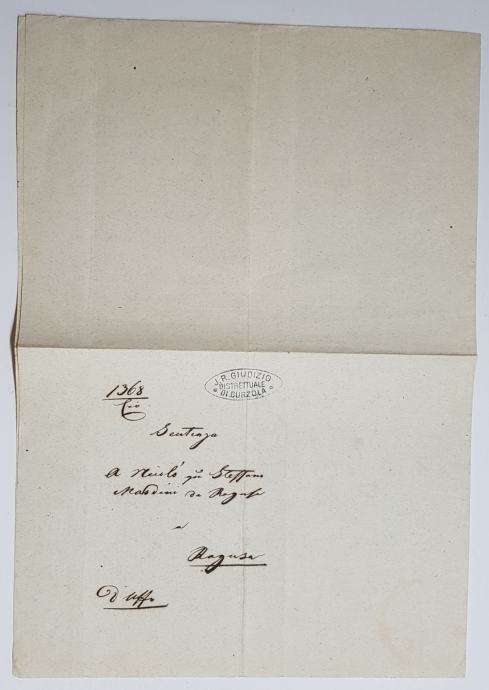 1368
Civ.
J. R. GIUDIZIO
DISTRETTUALE
DI CURZOLA
Sentenza
A Nicolò qm Steffano
da Ragusa
a
Ragusa
D'Uffo